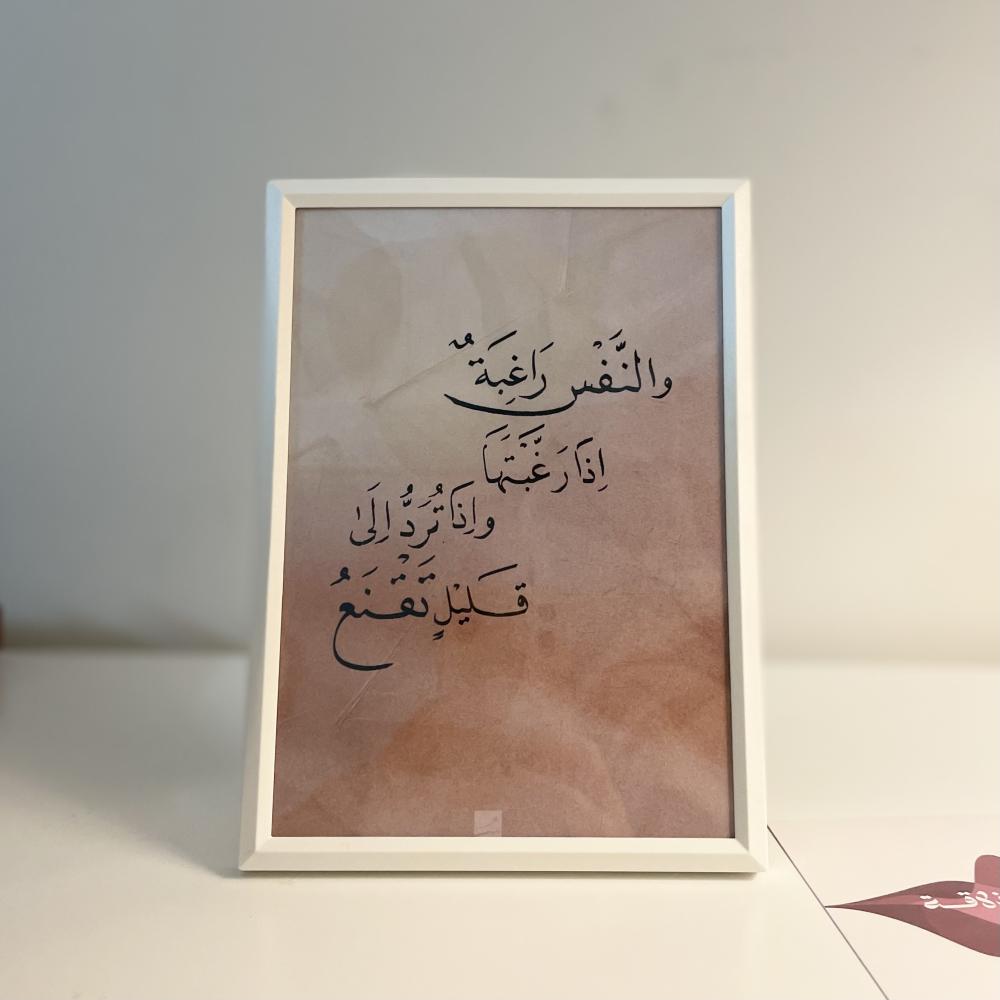 والنَّفْس رَاغِبَةٌ
اِذَا رَغَّبْتَهَا
واِذَا تُرَدُّ اِلَىٰ
قَليْلٍ تَقْنَعُ